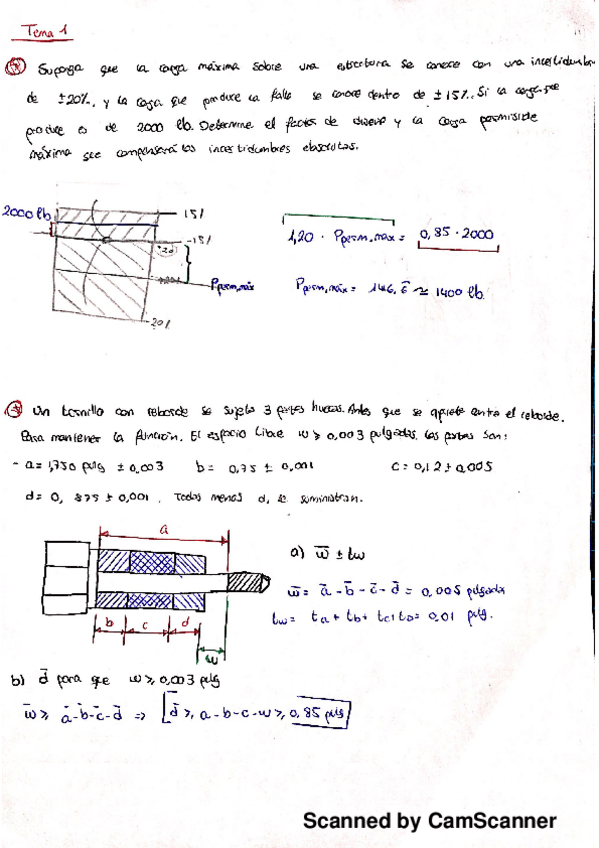 Tema 1
Suponga que la carga máxima sobre una estructura se conoce con una incertidumbre
de ±20%, y la carga que produce la falla se conoce dentro de ±15%. Si la carga que
produce es de 2000 lb. Determine el factor de diseño y la carga permisible
máxima que compensará las incertidumbres absolutas.
2000 lb
15%
-15%
Pperm,máx
-20%
1,20 · Pperm,max = 0,85 · 2000
Pperm,máx = 1416,6 ≈ 1400 lb.
Un tornillo con reborde se sujeta 3 partes huecas. Antes que se apriete entre el reborde.
Para mantener la función. El espacio libre w ≥ 0,003 pulgadas. Las partes son:
- a = 1,750 pulg ± 0,003 b = 0,75 ± 0,001 c = 0,12 ± 0,005
d = 0, 875 ± 0,001. Todas menos d, se suministran.
a
a) w̄ ± tw
w̄ = ā - b̄ - c̄ - d̄ = 0,005 pulgadas
tw = ta + tb + tc + td = 0,01 pulg.
b c d
w
b) d̄ para que w ≥ 0,003 pulg
w̄ ≥ ā - b̄ - c̄ - d̄ => d̄ ≥ a - b - c - w ≥ 0,85 pulg
Scanned by CamScanner